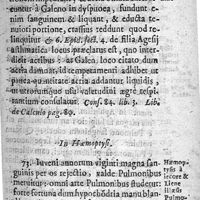 entur à Galeno in dyspnœa, fundunt e-
nim sanguinem & liquant, & educta te-
nuiori portione, crassius reddunt quod re-
linquitur & 6. Epid. sect. 4. de filia Agasij
asthmatica. locus præclarus est, quo inter-
dicit acribus 3. at Galen. loco citato dum
acria damnat, id temperamenti adhibet ut
acria adiantur, liquidis
uterumque, non valetudini ægræ respi-
rantium consulatur. Cons. 84. lib. 3. Lib.
de Calculo pag. 89.
In Hæmoptysi.
73. Iuveni annorum viginti magna san-
guinis per os rejectio, valde Pulmonibus
metuitur; omni arte Pulmoni studetur
forte fortuna dum hypochondria manu blan-
Hæmop-
tysis à
Iecore &
Liene
læsis
Pulmo-